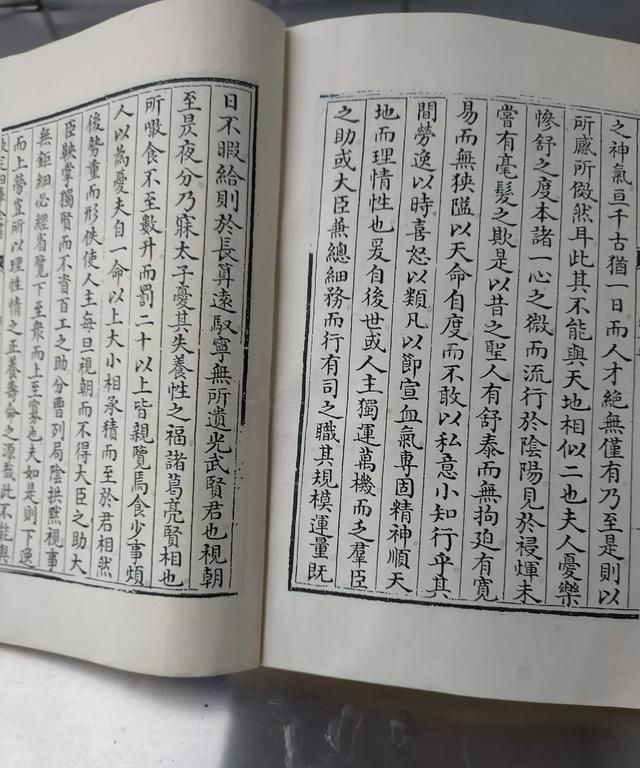 之神氣亘千古猶一日而人才絶無僅有乃至是則以
所感所儆然耳此其不能與天地相似二也夫人憂樂
慘舒之度本諸一心之微而流行於陰陽見於祲煇未
嘗有毫髮之欺是以昔之聖人有舒泰而無拘迫有寛
易而無狹隘以天命自度而不敢以私意小知行乎其
間勞逸以時喜怒以類凡以節宣血氣專固精神順天
地而理情性也爰自後世或人主獨運萬機而乏羣臣
之助或大臣兼總細務而行有司之職其規模運量既
日不暇給則於長算遠馭寧無所遺光武賢君也視朝
至昃夜分乃寐太子憂其失養性之福諸葛亮賢相也
所噉食不至數升而罰二十以上皆親覽焉食少事煩
人以為憂夫自一命以上大小相承積而至於君相然
後勢重而形佚使人主每旦視朝而不得大臣之助大
臣鞅掌獨賢而不資百工之助分曹列局陰拱黙視事
無鉅細必經省覽下至衆而上至寡也夫如是則下逸
而上勞豈所以理性情之正養壽命之源哉此不能與
欽定四庫全書